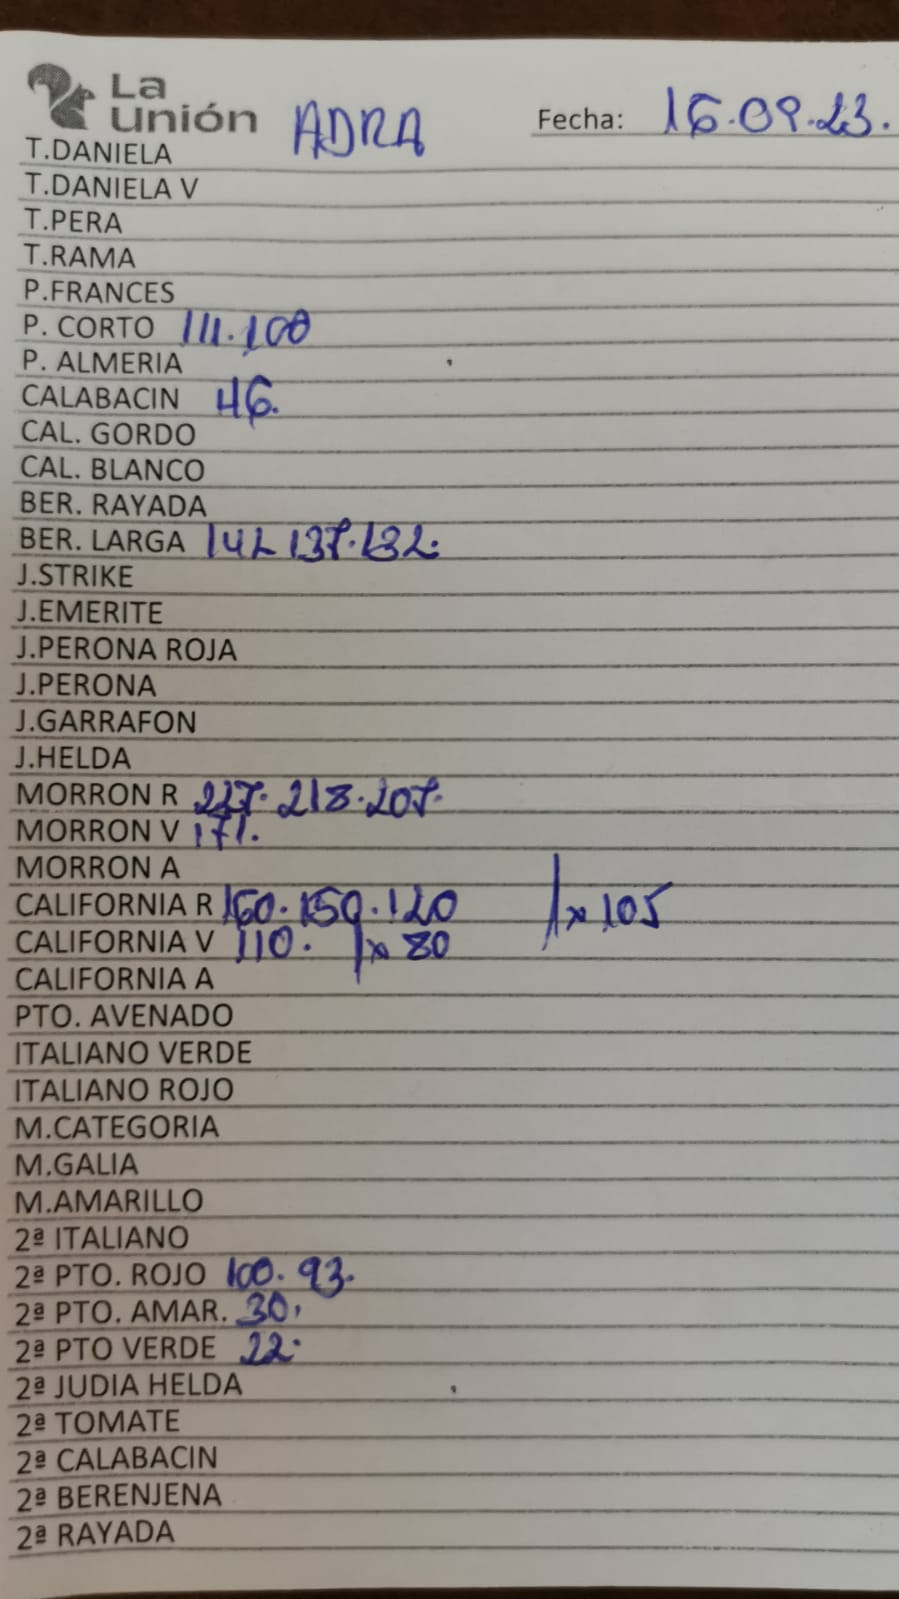 La
Unión
ADRA Fecha: 16.09.23.
T.DANIELA
T.DANIELA V
T.PERA
T.RAMA
P.FRANCES
P. CORTO 111.100
P. ALMERIA
CALABACIN 46.
CAL. GORDO
CAL. BLANCO
BER. RAYADA
BER. LARGA 142 137.132.
J.STRIKE
J.EMERITE
J.PERONA ROJA
J.PERONA
J.GARRAFON
J.HELDA
MORRON R 227. 218.207.
MORRON V 171.
MORRON A
CALIFORNIA R 160.150.120 /x 105
CALIFORNIA V 110. /x 80
CALIFORNIA A
PTO. AVENADO
ITALIANO VERDE
ITALIANO ROJO
M.CATEGORIA
M.GALIA
M.AMARILLO
2ª ITALIANO
2ª PTO. ROJO 100. 93.
2ª PTO. AMAR. 30.
2ª PTO VERDE 22.
2ª JUDIA HELDA
2ª TOMATE
2ª CALABACIN
2ª BERENJENA
2ª RAYADA